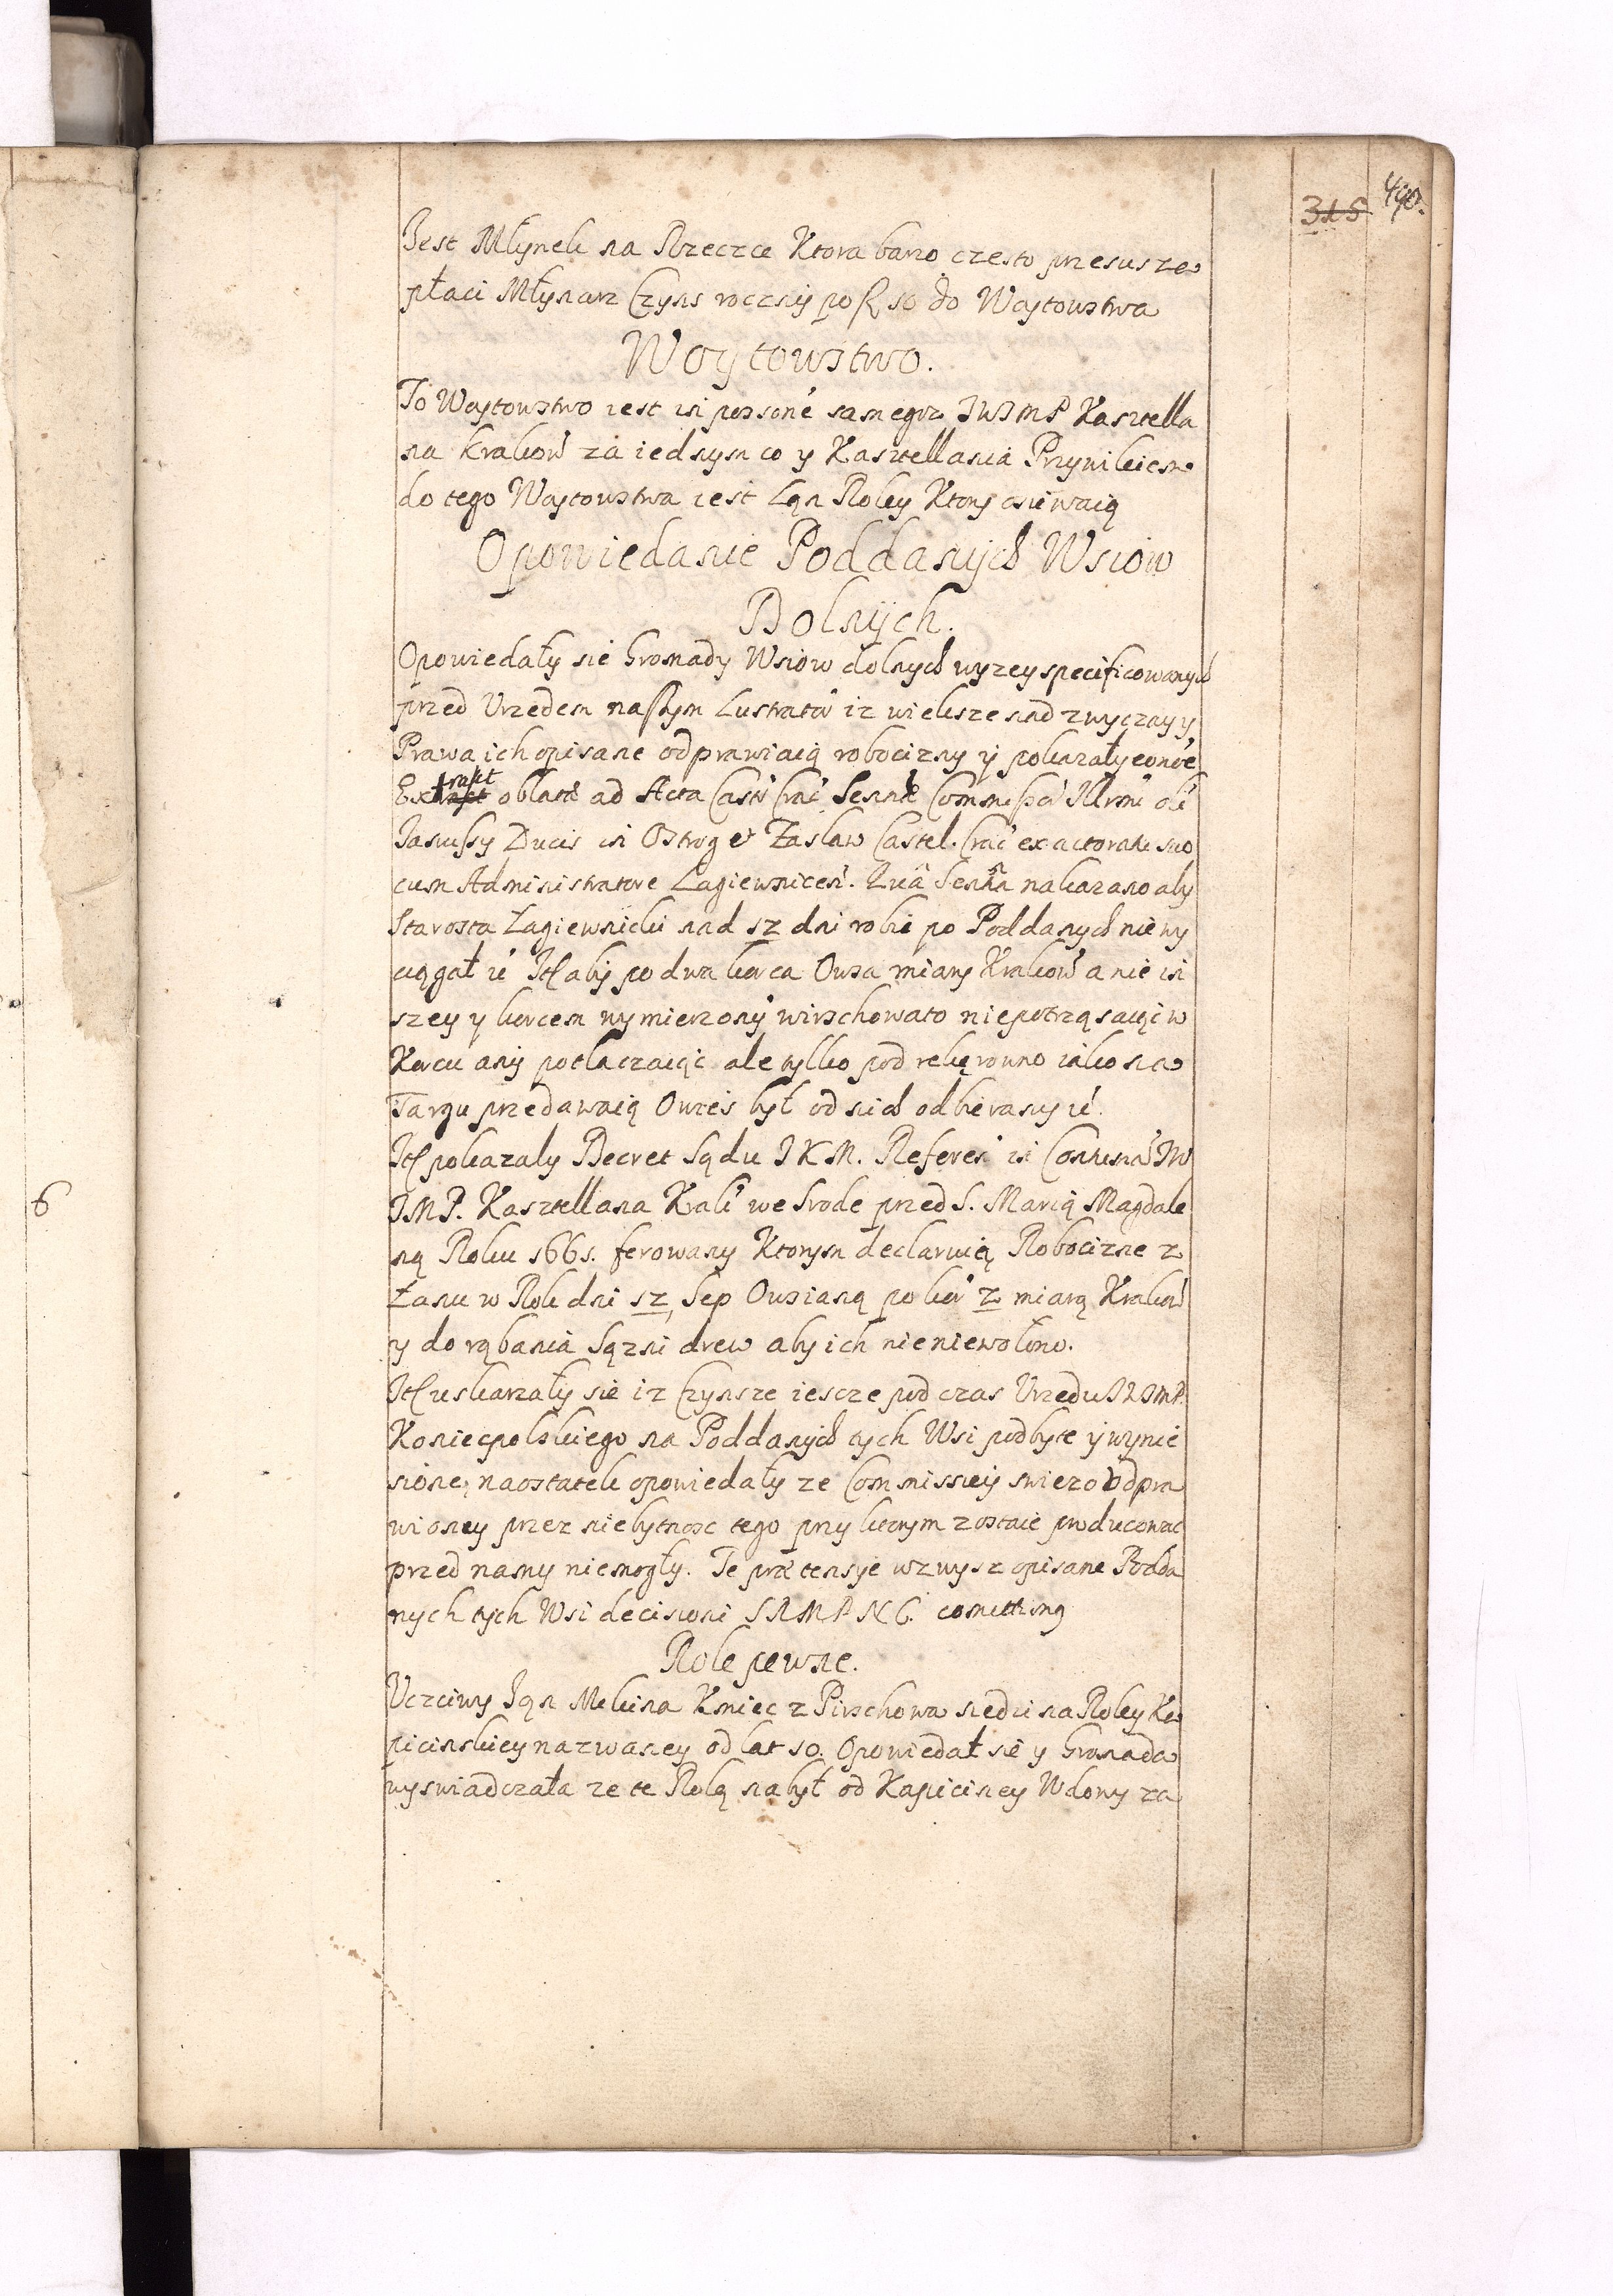 315 490.
Jest Młynek na Rzeczce Ktora barzo czesto przesusze
płaci Młynarz Czyns roczny po fl 10 do Woytowstwa
Woytowstwo.
To Woytowstwo iest in possone samegoz JWJMP Kasztella
na Krakow za iednym co y Kasztellania Przywileiem
do tego Woytowstwa iest Łąn Roley Ktory osiewaią
Opowiedanie Poddanych Wsiow
Dolnych.
Opowiedały sie Gromady Wsiow dolnych wyzey specificowanych
przed Urzedem naszym Lustrato iz wieksze nad zwyczay y
Prawa ich opisane odprawiaią robocizny y pokazały
Extrakt oblatæ ad Acta Castr Crac Commiss Illrmi oli
Janussy Ducis in Ostrog et Zaslaw Castel. Crac ex actoratu suo
cum Administratore Lagiewnicen. Qua nakazano aby
Starosta Łagiewnicki nad 12 dni robic po Poddanych nie wy
ciągał ie Itt aby po dwa korca Owsa miary Krakow a nie in
szey y korcem wymierzony wirzchowato niepotrząsaiąc w
Korcu any potłaczaiąc ale tylko pod reką rowno iako na
Targu przedawaią Owies był od nich odbierany ie.
Itt pokazaly Decret Sądu JKM. Referen in JW
JMP. Kasztellana Krak we Srode przed S. Marią Magdale
ną Roku 1661. ferowany Ktorym declaruią Robocizne z
Łanu w Rok dni 12, Sep Owsianą po kor 2 miarą Krakow
y do rąbania Sązni drew aby ich nieniewolono.
Itt uskarzały sie iz Czynsze iescze pod czas Urzedu
Koniecpolskiego na Poddanych tych Wsi podbyte y wynie
sione, naostatek opowiedały ze Commissiey swiezo odpra
wioney przez niebytnosc tego przy ktorym zostaie producowac
przed namy niemogły. Te prætensye wzwysz opisane Podda
nych tych Wsi decisioni SRMP NC. comittimg
Role pewne.
Uczciwy Jąn Mekina Kmiec z Pirzchowa siedzi na Roley Ka
picinskiey nazwaney od lat 10. Opowiedał sie y Gromada
wyswiadczała ze te Rolą nabył od Kapiciney Wdowy za
6